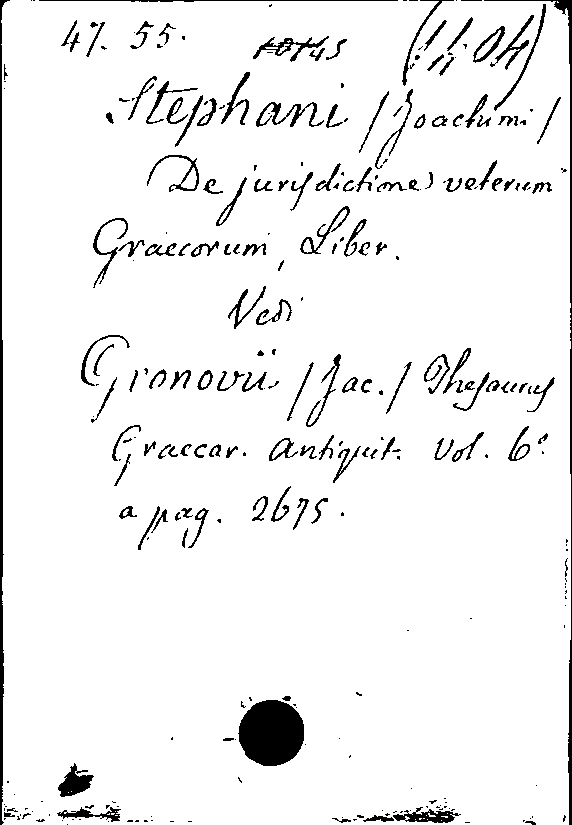 47. 55.
Stephani /Joachimi/
De jurisdictione veterum
Graecorum, Liber.
Vedi
Gronovii /Jac./ Thesaurus
Graecar. Antiquit. Vol. 6º
a pag. 2675.